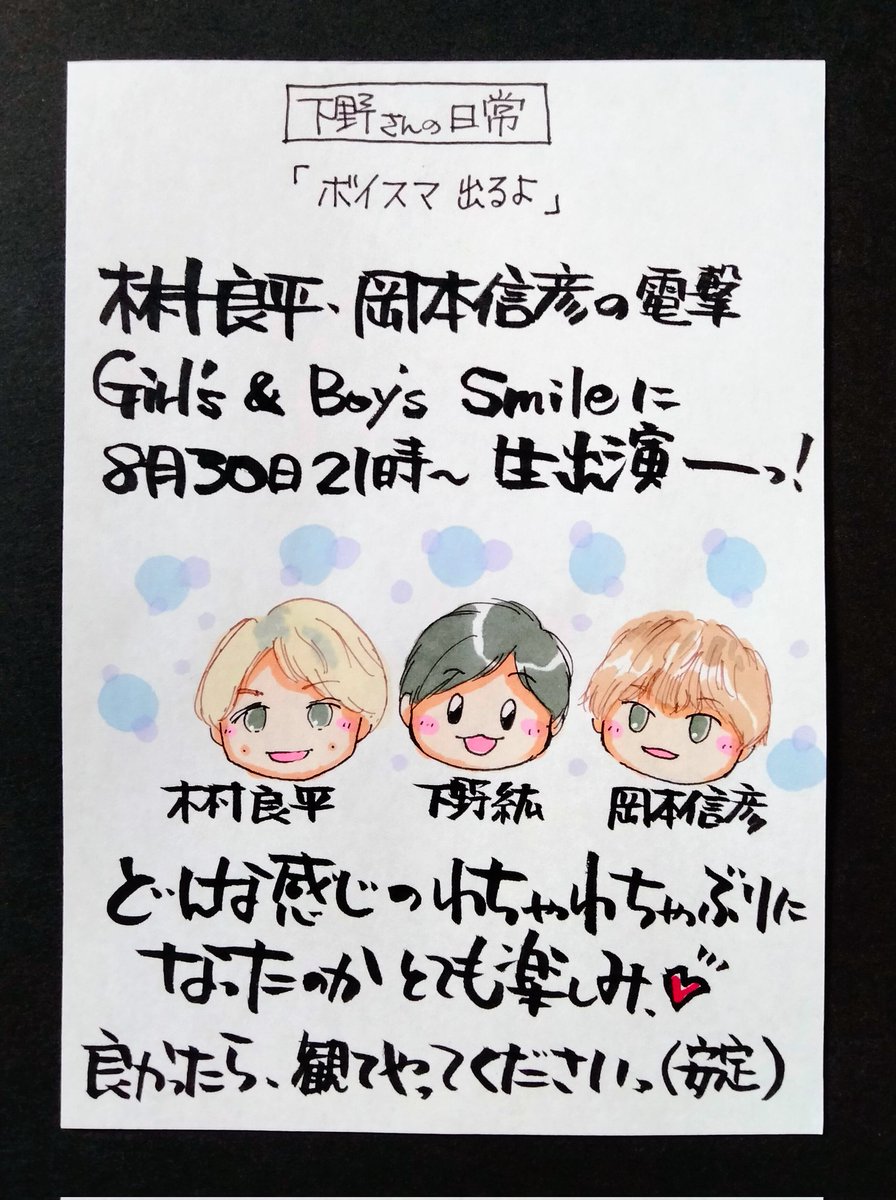 下野さんの日常
「ボイスマ 出るよ」
木村良平、岡本信彦の電撃
Girl's & Boy's Smileに
8月30日21時～ 生出演ーっ!
木村良平
下野紘
岡本信彦
どんな感じのわちゃわちゃぶりに
なったのか とても楽しみ、
良かったら、観てやってくださいっ(安定)